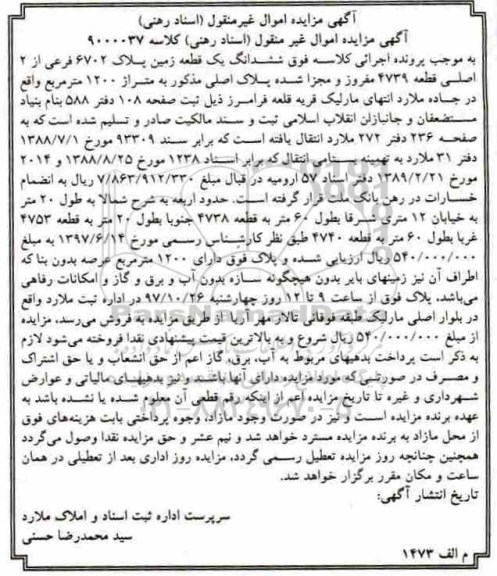 آگهی مزایده اموال غیرمنقول (اسناد رهنی)
آگهی مزایده اموال غیر منقول (اسناد رهنی) کلاسه ۹۰۰۰۰۳۷
به موجب پرونده اجرائی کلاسه فوق ششدانگ یک قطعه زمین پلاک ۶۷۰۲ فرعی از ۲
اصلی قطعه ۴۷۳۹ مفروز و مجزا شده پلاک اصلی مذکور به متراژ ۱۲۰۰ مترمربع واقع
در جاده ملارد انتهای مارلیک قریه قلعه فرامرز ذیل ثبت صفحه ۱۰۸ دفتر ۵۸۸ بنام بنیاد
مستضعفان و جانبازان انقلاب اسلامی ثبت و سند مالکیت صادر و تسلیم شده است که به
صفحه ۲۳۶ دفتر ۲۷۲ ملارد انتقال یافته است که برابر سند ۹۳۳۰۹ مورخ ۱۳۸۸/۷/۱
دفتر ۳۱ ملارد به تهمینه بستامی انتقال که برابر اسناد ۱۲۳۸ مورخ ۱۳۸۸/۸/۲۵ و ۲۰۱۴
مورخ ۱۳۸۹/۲/۲۱ دفتر اسناد ۵۷ ارومیه در قبال مبلغ ۷/۸۶۳/۹۱۲/۳۳۰ ریال به انضمام
خسارات در رهن بانک ملت قرار گرفته است. حدود اربعه به شرح شمالا به طول ۲۰ متر
به خیابان ۱۲ متری شرقا بطول ۶۰ متر به قطعه ۴۷۳۸ جنوبا بطول ۲۰ متر به قطعه ۴۷۵۳
غربا بطول ۶۰ متر به قطعه ۴۷۴۰ طبق نظر کارشناس رسمی مورخ ۱۳۹۷/۶/۱۴ به مبلغ
۵۴۰/۰۰۰/۰۰۰ ریال ارزیابی شده و پلاک فوق دارای ۱۲۰۰ مترمربع عرصه بدون بنا که
اطراف آن نیز زمینهای بایر بدون هیچگونه سازه بدون آب و برق و گاز و امکانات رفاهی
می‌باشد، پلاک فوق از ساعت ۹ تا ۱۲ روز چهارشنبه ۹۷/۱۰/۲۶ در اداره ثبت ملارد واقع
در بلوار اصلی مارلیک طبقه فوقانی تالار مهر آریا از طریق مزایده به فروش می‌رسد، مزایده
از مبلغ ۵۴۰/۰۰۰/۰۰۰ ریال شروع و به بالاترین قیمت پیشنهادی نقدا فروخته می‌شود لازم
به ذکر است پرداخت بدهیهای مربوط به آب، برق، گاز اعم از حق انشعاب و یا حق اشتراک
و مصرف در صورتی که مورد مزایده دارای آنها باشد و نیز بدهیهای مالیاتی و عوارض
شهرداری و غیره تا تاریخ مزایده اعم از اینکه رقم قطعی آن معلوم شده یا نشده باشد به
عهده برنده مزایده است و نیز در صورت وجود مازاد، وجوه پرداختی بابت هزینه‌های فوق
از محل مازاد به برنده مزایده مسترد خواهد شد و نیم عشر و حق مزایده نقدا وصول می‌گردد
همچنین چنانچه روز مزایده تعطیل رسمی گردد، مزایده روز اداری بعد از تعطیلی در همان
ساعت و مکان مقرر برگزار خواهد شد.
تاریخ انتشار آگهی:
سرپرست اداره ثبت اسناد و املاک ملارد
سید محمدرضا حسنی
م الف ۱۴۷۳